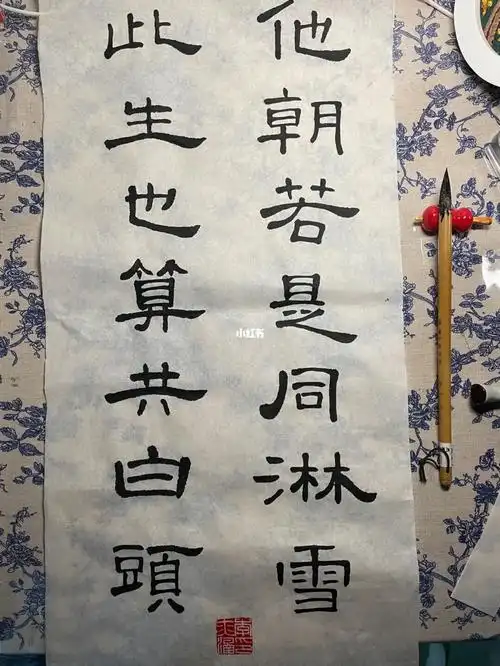 他朝若是同淋雪
此生也算共白頭
小红书